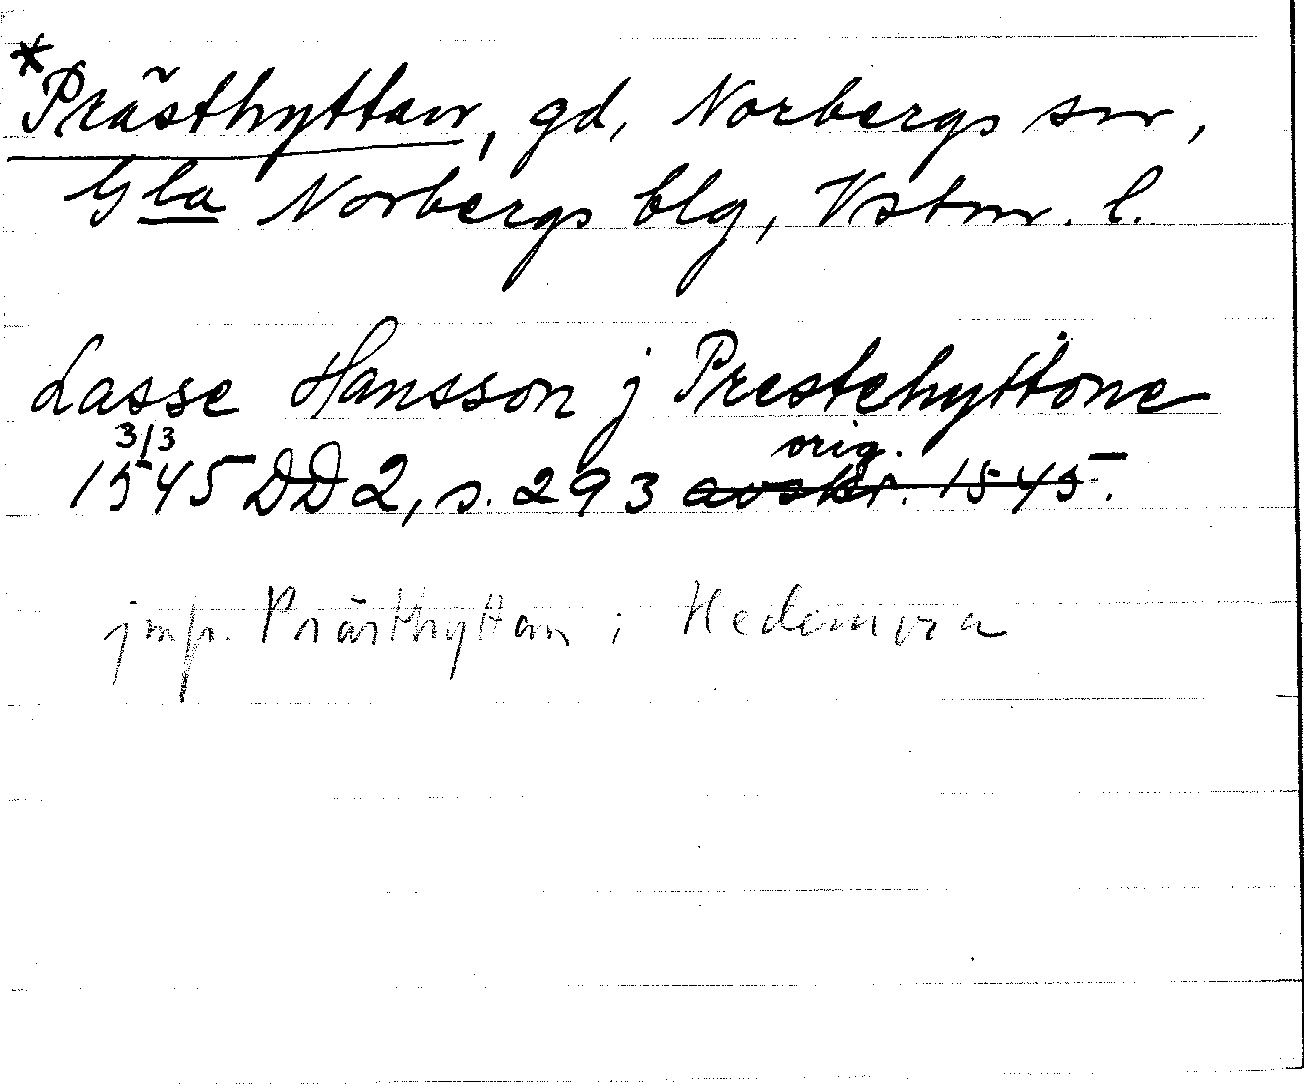 *Prästhyttan, gd, Norbergs sn,
Gla Norbergs blg, Vstm. l.
Lasse Hansson j Prestehyttone
3/3 orig.
1545 DD 2, s. 293 avskr. 1545.
jmfr. Prästhyttan i Hedemora